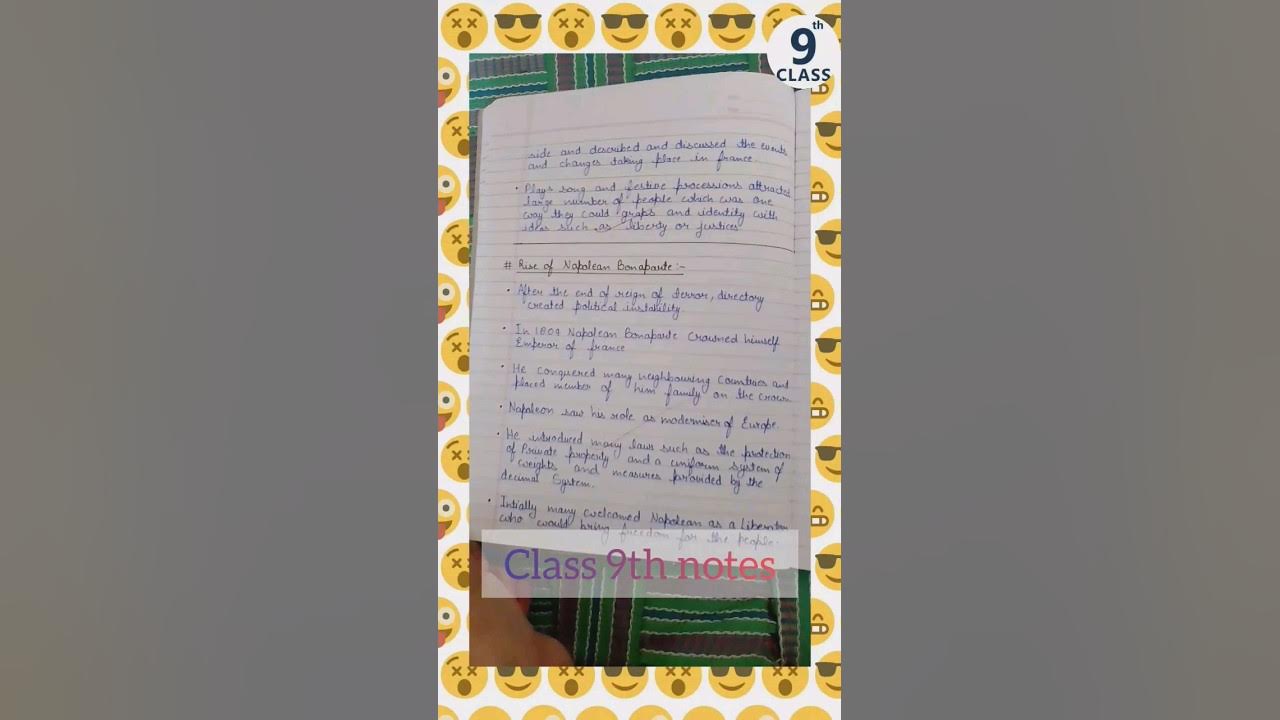 9th
CLASS
side and described and discussed the events
and changes taking place in france.
• Plays song and festive processions attracted
large number of people which was one
way they could graps and identity with
ideas such as liberty or justices
# Rise of Napolean Bonaparte :-
• After the end of reign of terror, directory
created political instability.
• In 1804 Napolean Bonaparte crowned himself
Emperor of france
• He conquered many neighbouring Countries and
placed member of him family on the crown
• Napoleon saw his role as moderniser of Europe.
• He introduced many laws such as the protection
of Private property and a uniform system of
weights and measures provided by the
decimal System.
• Intially many welcomed Napolean as a liberator
who would bring freedom for the people.
Class 9th notes